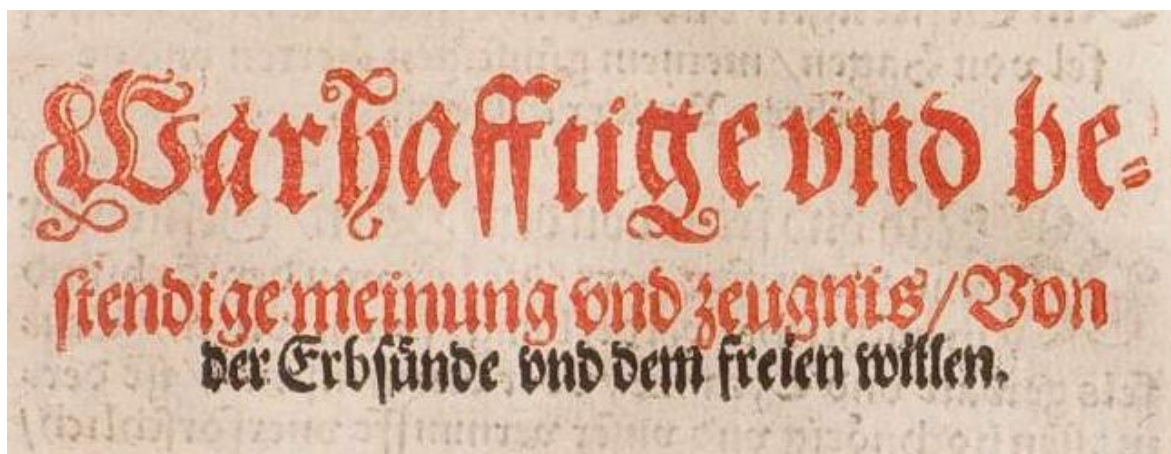 Warhafftige vnd be⸗
ſtendige meinung vnd zeugnis/ Von
der Erbſuͤnde vnd dem freien willen.